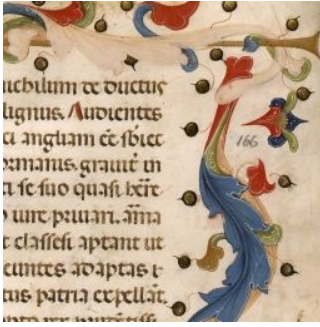 nichilum de ductus
lignus. Audientes
ci angliam eē sbiec
ormanis. grauit in
ti se suo quasi
iure priuari. aīna
t classesi aptant ut
cuntes ad aptas
tus patria expellāt.
rex
166